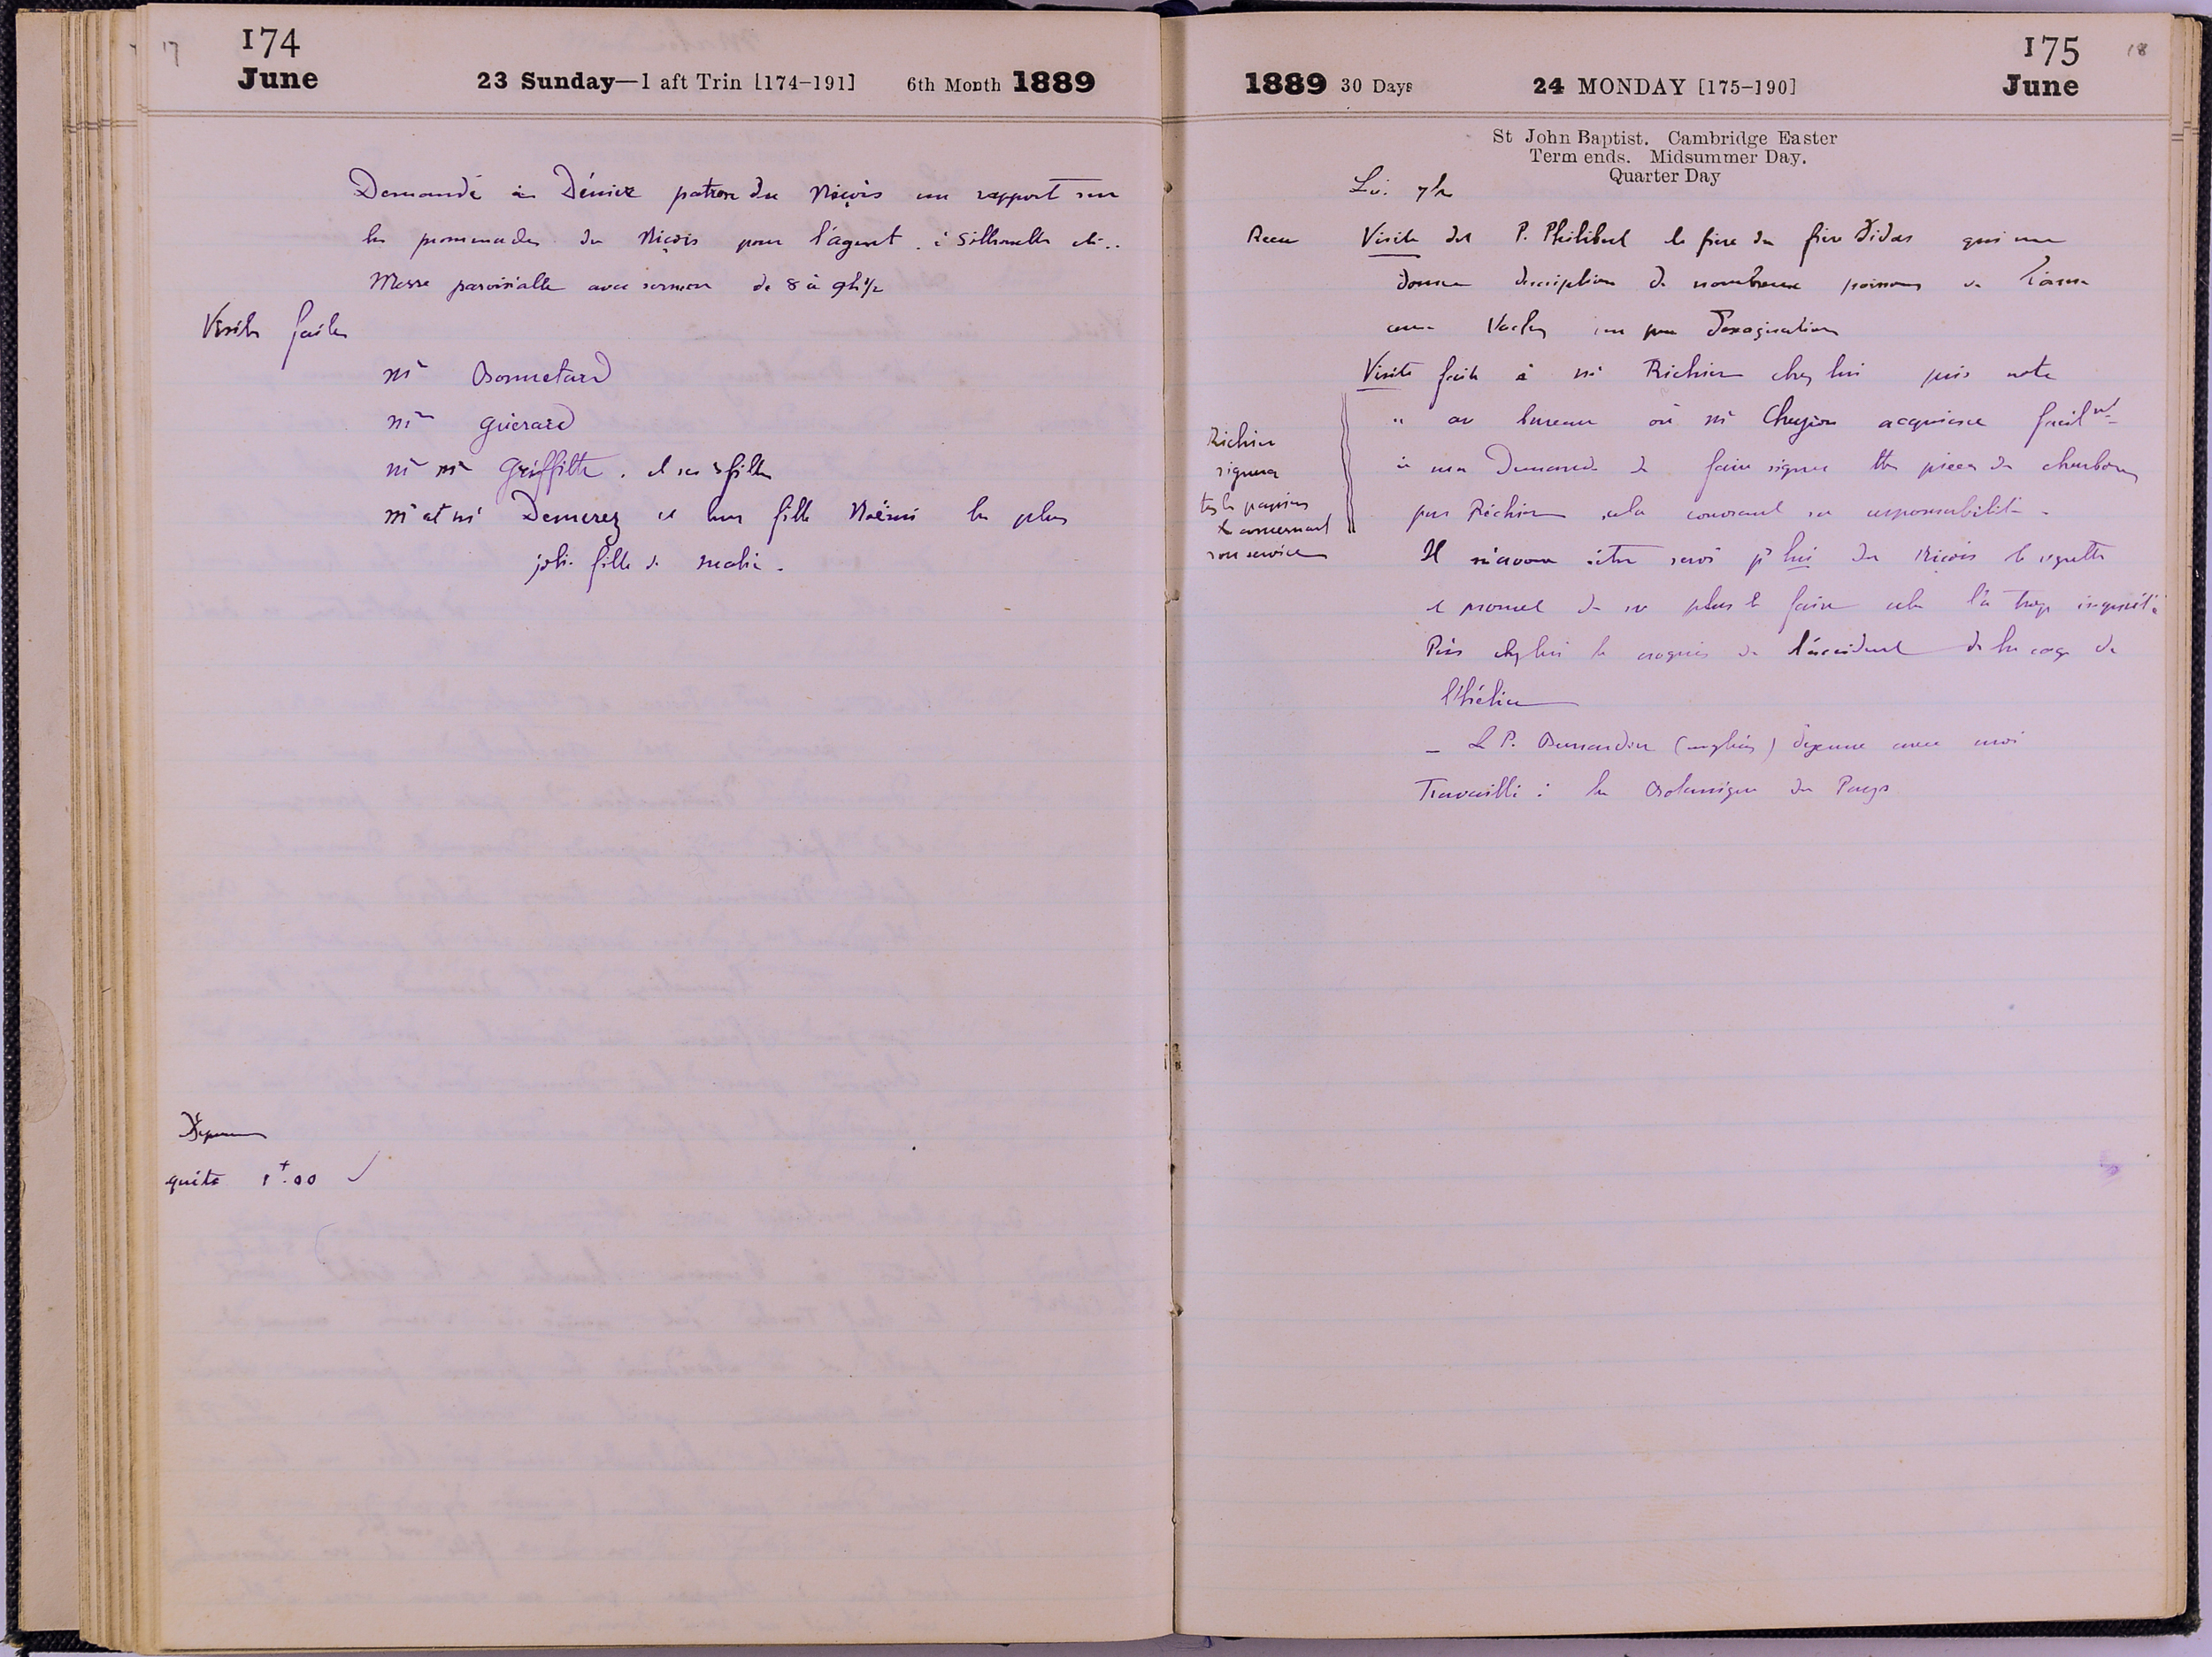 17
174
June
23 Sunday—1 aft Trin [174-191] 6th Month 1889
Demandé à Déniez patron du Niçois un rapport sur
les promenades du Niçois pour l'agent. à Silhouette etc..
Messe paroissiale avec sermon de 8 à 9h½
Visites faites
Mr Bonnetard
Mr Guérard
Mr Mme Griffith. et ses 3 filles
Mr et Me Demerez et leur fille Noémi la plus
jolie fille de Mahé.
Dépenses
quête 1+.00
18
175
June
1889 30 Days 24 MONDAY [175-190]
St John Baptist. Cambridge Easter
Term ends. Midsummer Day.
Quarter Day
7h
Recu Visite del P. Philibert le frère du frère Didas qui me
donne description de nombreux poissons
un peu d'exagération
Visite faite à Mr Richier chez lui puis note
" au bureau où Mr Chugion acquiesce facilmt
à ma Demande de faire signer ttes pièces de charbon
par Richier cela couvrant sa responsabilité.
Richier
signera
ts les papiers
concernant
son service
Il m'avoue être servi pr lui du Niçois le regrette
et promet de ne plus le faire cela l'a trop inquiété
Pris chez lui le croquis de l'accident de la cage de
l'hélice
— Le P. Bernardin (anglais) déjeune avec moi
Travaillé : la Botanique du Pays